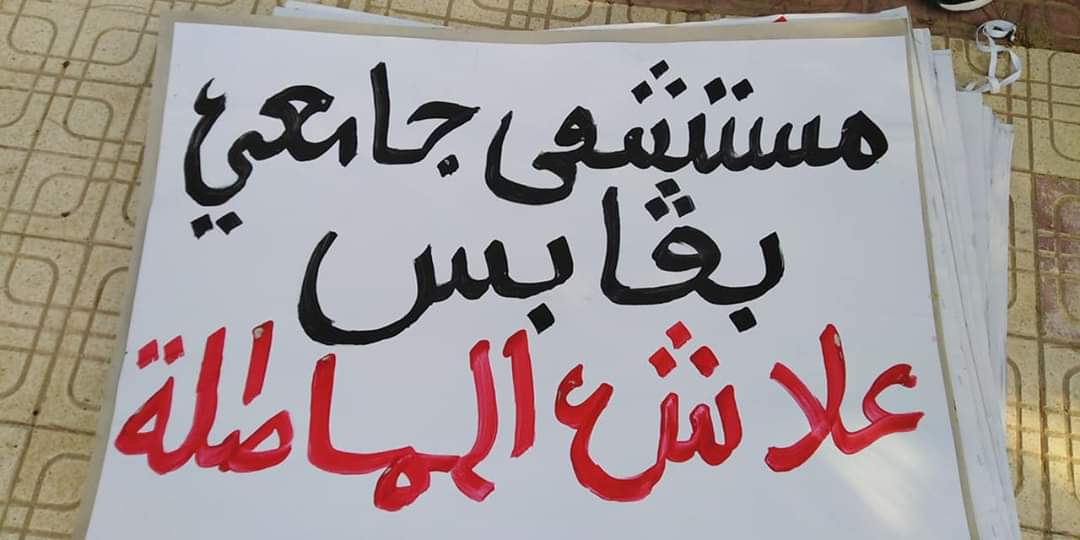 مستشفى جامعي
بڨابس
علاش المماطلة